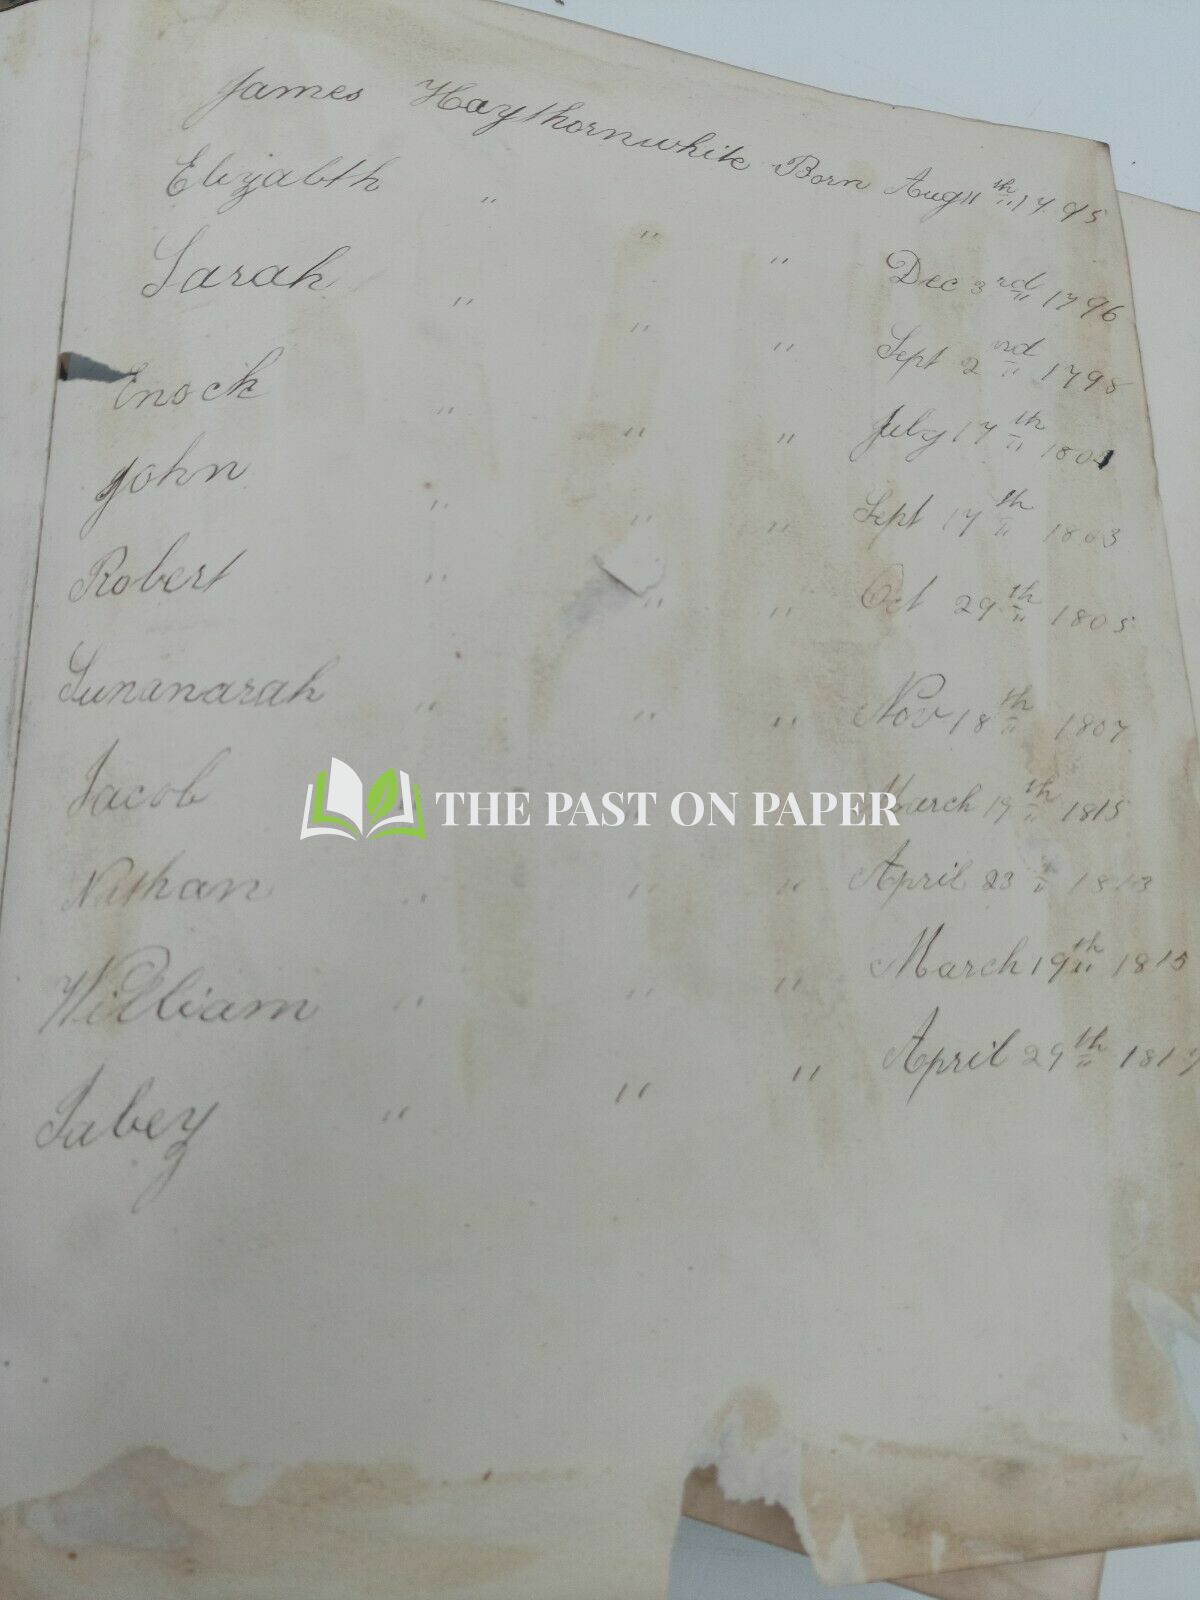 James Haythornwhite Born Aug 11th 1795
Elizabth " " " Dec 3rd 1796
Sarah " " " Sept 2nd 1798
Enock " " " July 17th 1801
John " " " Sept 17th 1803
Robert " " " Oct 29th 1805
Sunanarah " " " Nov 18th 1807
Jacob " " " March 19th 1815
Nathan " " " April 23 1813
William " " " March 19th 1815
Jabey " " " April 29th 1813
THE PAST ON PAPER